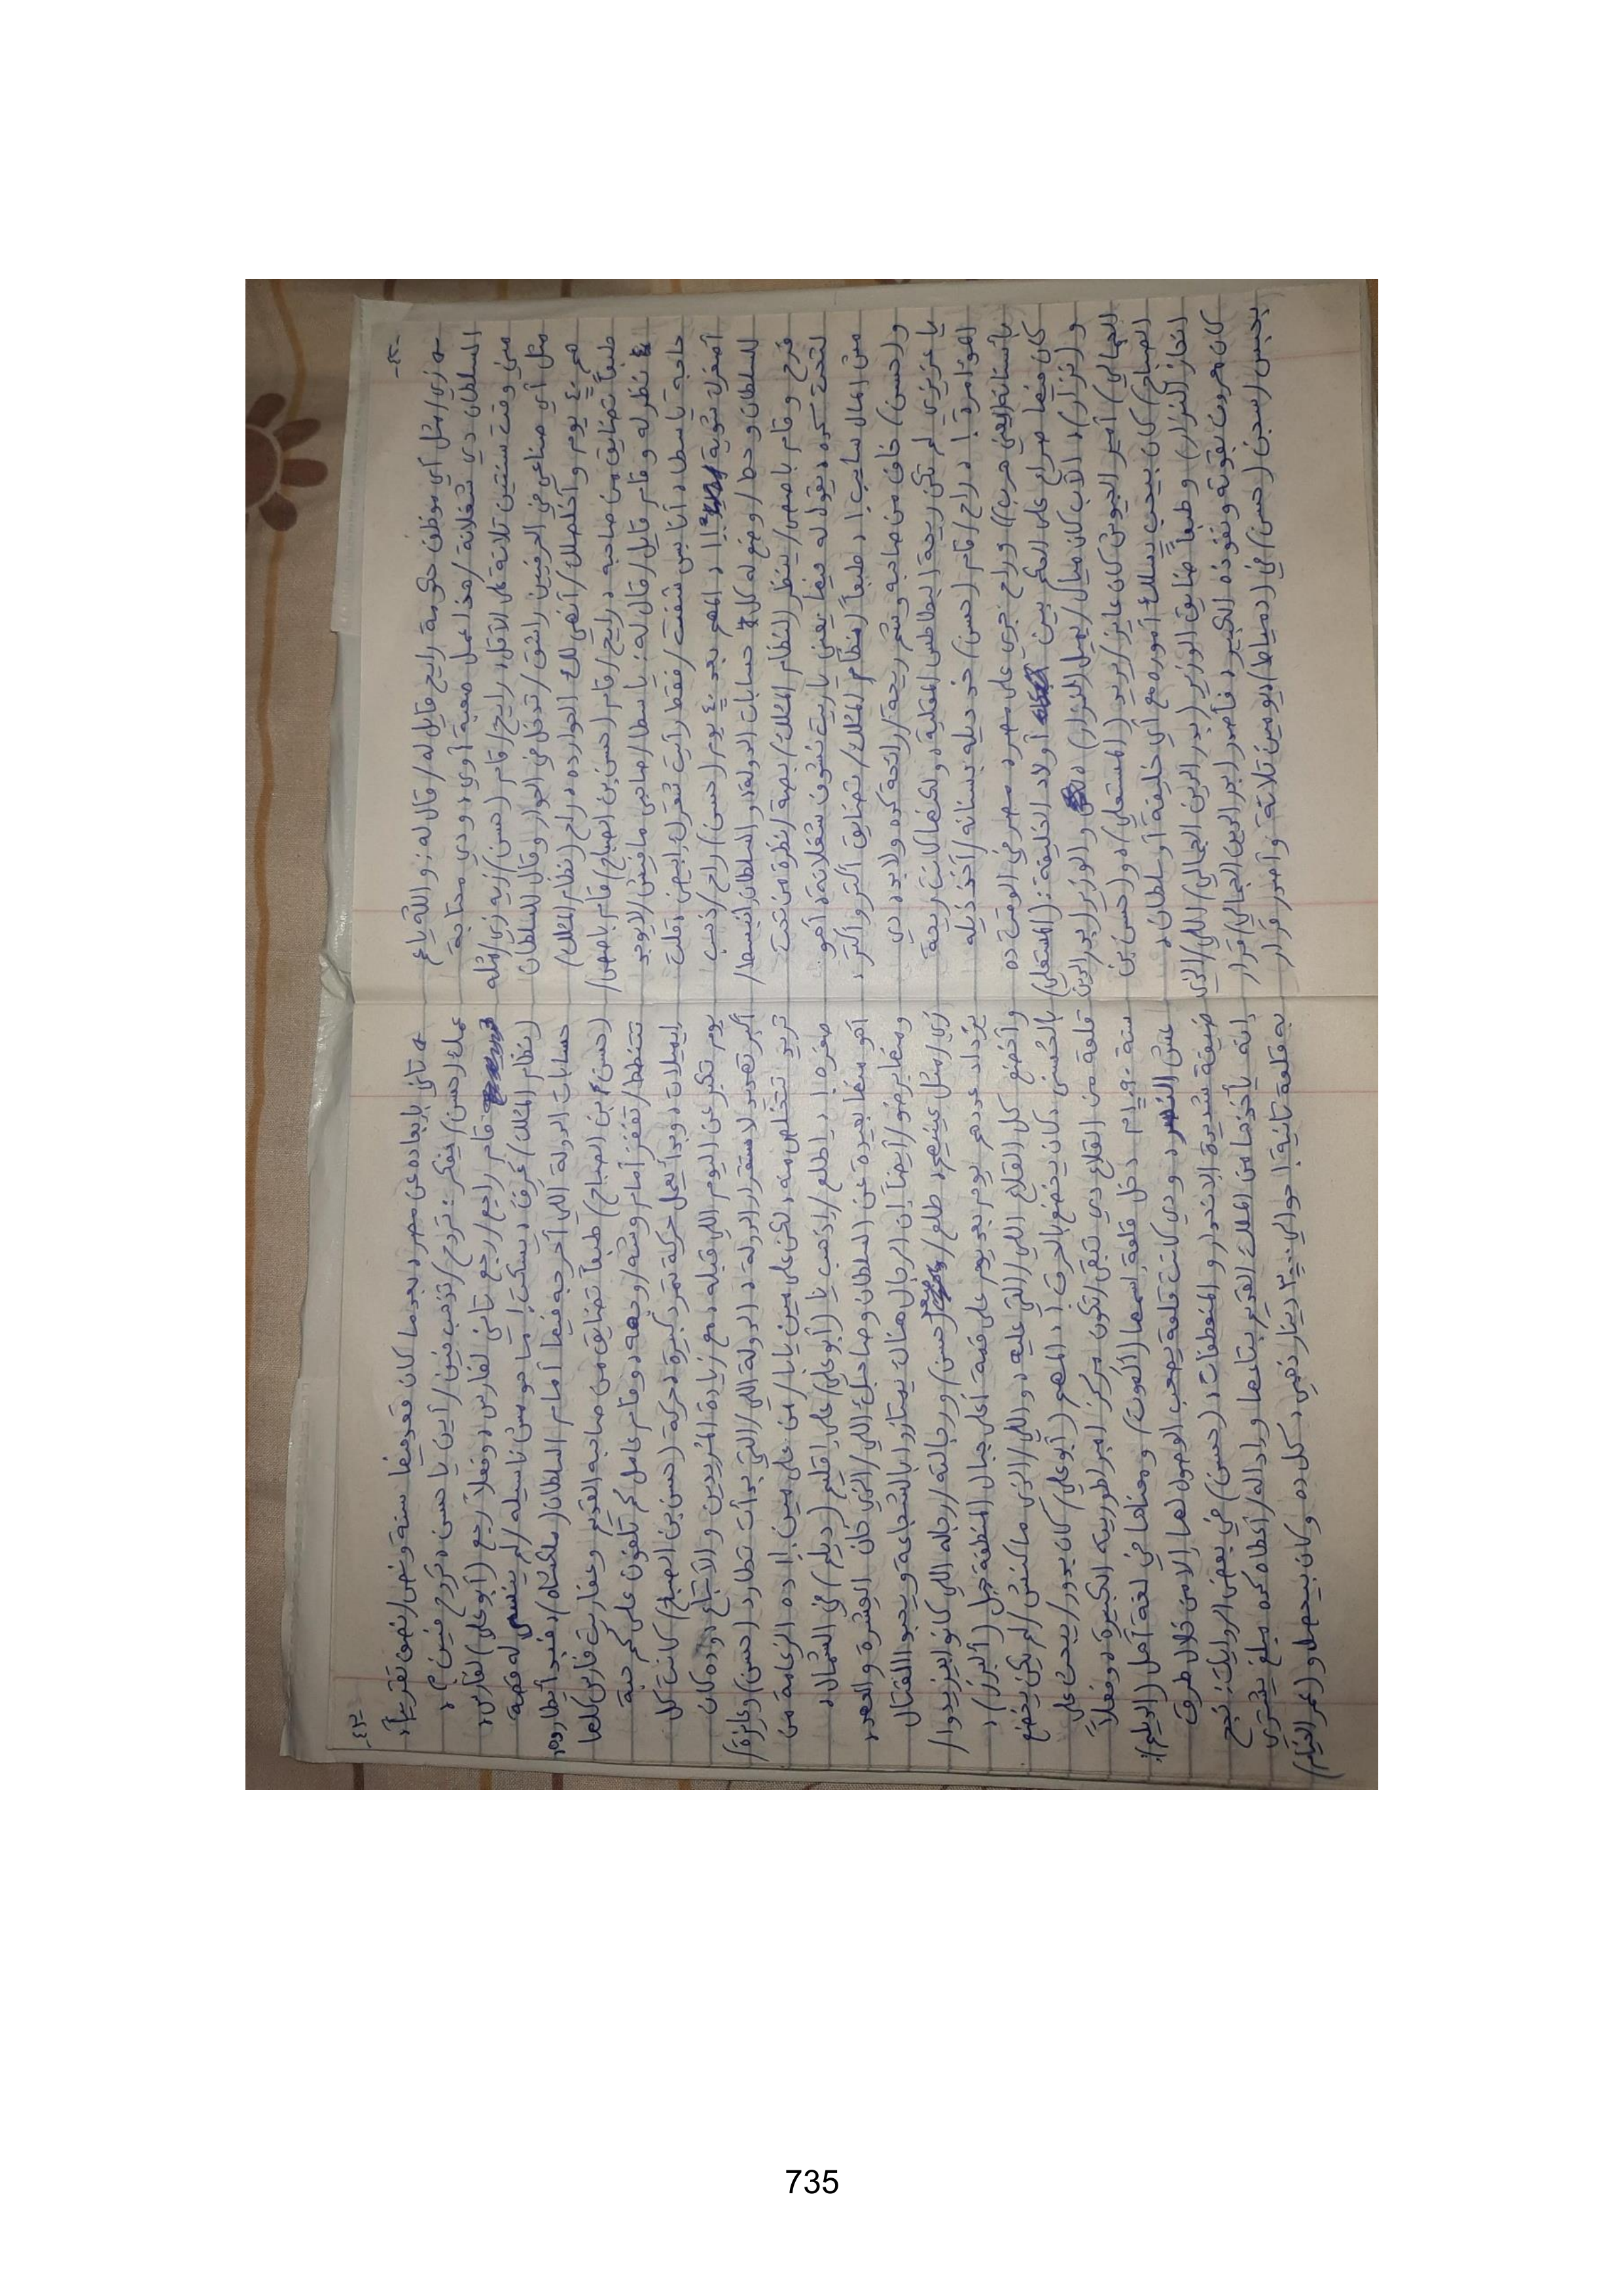 * زي/مثل أي موظف حكومة رايح قايل له/قال له: والله ياع
السلطان دي شغلانة/هذا عمل صعبة أوي، ودي محتاجة
مني وقت سنتين تلاتة على الأقل، رايح/قام (حسن) زيه زي/مثله
مثل أي صناعي في الحرفيين راشق/تدخل في الحوار وقال للسلطان
هم ٤٠ يوم وأخلصلك/أنهي لك الحوار ده، راح (نظام الملك)
طبعاً تضايق من صاحبه، رايح/قام (حسن بن الصباح)/قام باصص/
نظر له وقام قايل/قال له: ياسطا/صاحبي مافيش/لايوجد
حاجة ياسطا، أنا بس شفت/فقط رأيت شعرك ابيض، قلت
أصغرك شوية !! ، المهم بعد ٤٠ يوم (حسن) راح/ذهب
للسلطان وحط/وضع له كل حسابات الدولة، والسلطان انبسط/
فرح وقام باصص/ينظر لـ(نظام الملك) بصة/نظرة من تحت
لتحت كده، يقول له فيها يعني ياريت تشوف شغلانة، أهو
مش المال سايب !، طبعاً (نظام الملك) تضايق أكتر وأكتر،
و(حسن) خاف من صاحبه وشم ريحة/رائحة كده ولا بد، دي
يا عزيزي لم تكن ريحة البطاطس المقلية، ولكنها كانت ريحة
المؤامرة !، راح/قام (حسن) خد ديله بسنانه/أخذ ذيله
بأسنانه (يعني هرب)) وراح جري على مصر، مصر في الوقت ده
كان فيها صراع على الحكم بين أولاد الخليفة: (المستعلي)
و(نزار)، الأب كان ميال/يميل لـ(نزار)، والوزير (بدر الدين
الجمالي) أمير الجيوش كان عايز/يريد (المستعلي)، و(حسن بن
الصباح) كان بيحب يسلك أموره مع أي خليفة أو سلطان،
انحاز لـ(نزار) وطبعاً ضايق الوزير (بدر الدين الجمالي) اللي/الذي
كان معروف بقوته ونفوذه الكبير، فأصدر (بدر الدين الجمالي) قرار
بحبس/بسجن (حسن) في (دمياط) ويومين تلاتة وأصدر قرار
* تاني بإبعاده عن مصر، بعدما كان قعد فيها سنة ونص/نصف تقريباً،
عمك (حسن) يفكر: تروح/تذهب فين/أين يا حسن، تروح فين؟،
قام راجع/رجع تاني لفارس، وفعلاً رجع (أبو علي) لفارس،
(نظام الملك) عَرِف، يسكت! ميا حو مش ناسيله/لم ينسى له قصة
حسابات الدولة اللي أحرجه فيها أمام السلطان (ملكشاه)، فبدأ يطارده،
(حسن بن الصباح) طبعاً تضايق من صاحبه القديم وعفاريت فارس كلها
تتنطط/تقفز أمام وشه/وجهه، وقام عامل كم تلفون على كم حبة
إيميلات، وبدأ يعمل حركة تمرد كبيرة، حركة (حسن بن الصباح) كانت كل
يوم تكبر عن اليوم اللي قبله، مع زيادة المُريدين والأتباع، وده كان
أكبر تهديد لاستقرار الدولة، الدولة اللي/التي بدأت تطارد (حسن) وعايزة/
تريد تتخلص منه، لكن على مين يا بابا/من على مين!! ده الزعامة من
صغره!، اطلع/اذهب يا (أبو علي) على إقليم (ديلم) في الشمال،
أهو منها بعيدة عن السلطان وصاحبك اللي/الذي خان العِشرة والعهد،
ومنها برضو/أيضاً إن الرجال هناك يمتازوا بالشجاعة ويحبوا القتال
زي/مثل عينيهم، طلع/صعد (حسن) ورجالته/رجاله اللي كانوا بيزيدوا/
يزداد عددهم يوم بعد يوم على قمة أعلى جبال المنطقة جبل (ألبرز)،
وأخضع كل القلاع اللي/التي عليه، واللي/الذي ماكنش/لم يكن يخضع
بالحُسنى، كان يخضع بالحرق!، المهم (أبو علي) كان يدور/يبحث على
قلعة من القلاع دي تبقى/تكون مركز امبراطوريته الكبيرة، وفعلاً
سنة ١٠٩٠م دخل قلعة إسمها (ألموت) ومعناها في لغة أهل (الديلم):
عش النسر، ودي كانت قلعة يصعب الوصول لها إلا من خلال طرق
ضيقة شديدة الإنحدار والمنعطفات، (حسن) في بعض الروايات: نجح
إنه يأخذها من الملك القديم بتاعها وإداله/أعطاه كده مبلغ يشتري
به قلعة تانية! حوالي ٣٠٠٠ دينار ذهبي، كل ده وكان بيحصل و(عمر الخيام)
735